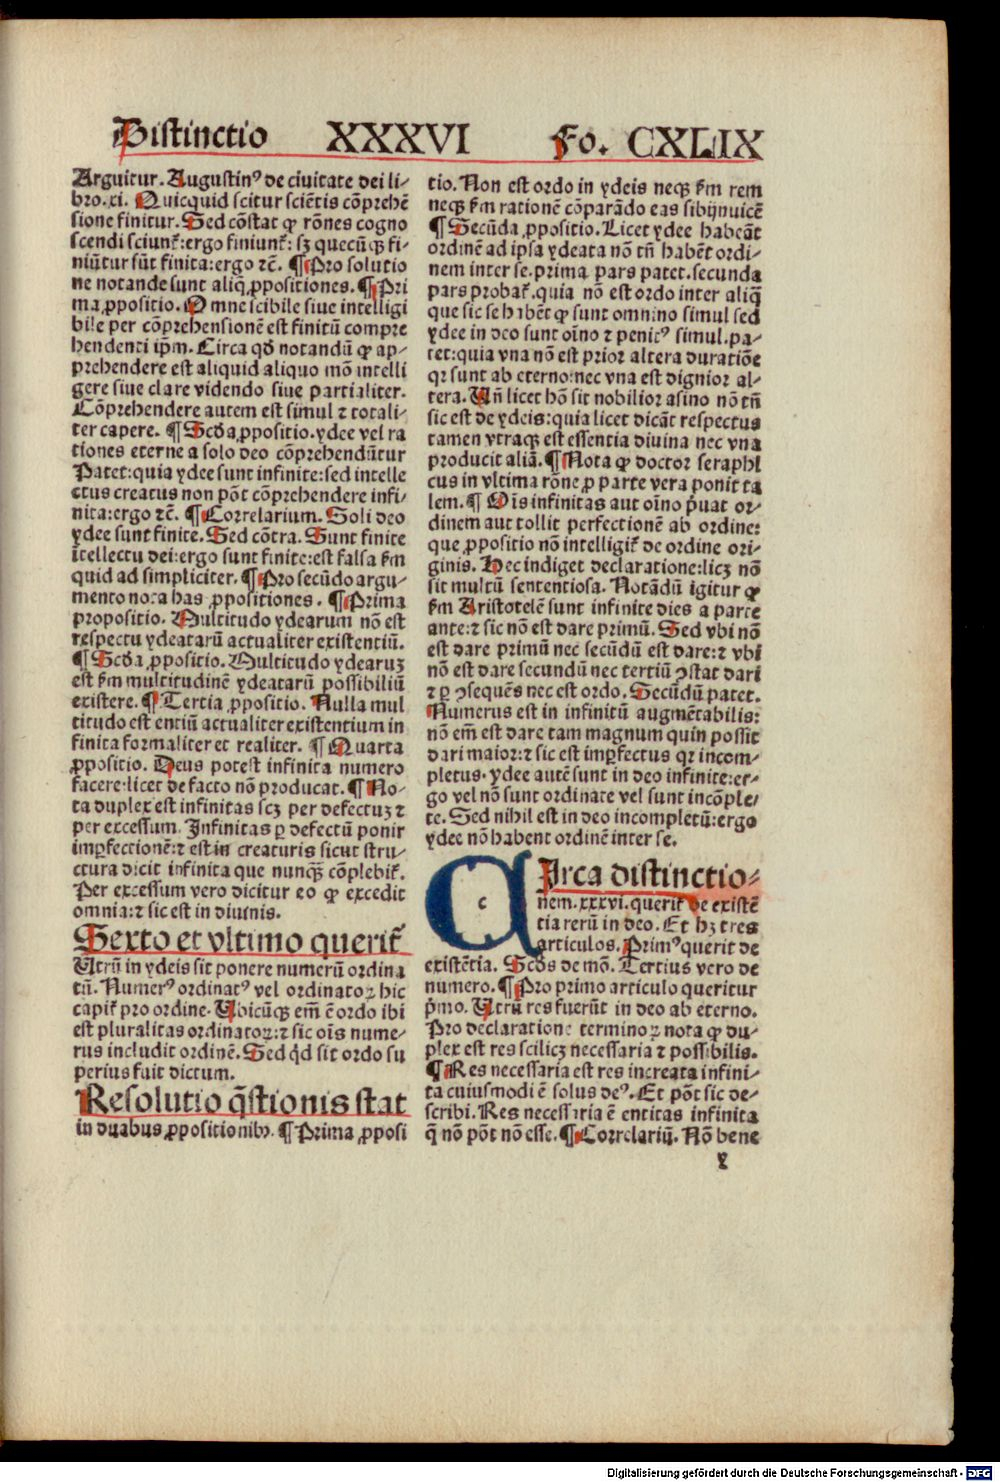 Distinctio XXXVI Fo. CXLIX
Arguitur. Augustinꝰ de ciuitate dei li-
bro.xi. Quicquid scitur sciẽtis cõprehẽ
sione finitur. Sed cõstat ꝙ rõnes cogno
scendi sciunt̃:ergo finiunt̃: sꝫ quecũqꝫ fi-
niũtur sũt finita:ergo ⁊c̃. ¶ Pro solutio
ne notande sunt aliq̃ ꝓpositiones. ¶ Pri
ma ꝓpositio. Omne scibile siue intelligi
bile per cõprehensionẽ est finitũ compre
hendenti ip̃m. Circa qđ notandũ ꝙ ap-
prehendere est aliquid aliquo mõ intelli
gere siue clare videndo siue partialiter.
Cõprehendere autem est simul ⁊ totali-
ter capere. ¶ Scđa ꝓpositio. ydee vel ra
tiones eterne a solo deo cõprehendũtur
Patet:quia ydee sunt infinite:sed intelle
ctus creatus non põt cõprehendere infi-
nita:ergo ⁊c̃. ¶ Correlarium. Soli deo
ydee sunt finite. Sed cõtra. Sunt finite
ĩtellectu dei:ergo sunt finite:est falsa ẜm
quid ad simpliciter. ¶ Pro secũdo argu-
mento nota has ꝓpositiones. ¶ Prima
propositio. Multitudo ydearum nõ est
respectu ydeatarũ actualiter existentiũ.
¶ Scđa ꝓpositio. Multitudo ydearuꝫ
est ẜm multitudinẽ ydeatarũ possibiliũ
existere. ¶ Tertia ꝓpositio. Nulla mul
titudo est entiũ actualiter existentium in
finita formaliter et realiter. ¶ Quarta
ꝓpositio. Deus potest infinita numero
facere:licet de facto nõ producat. ¶ No-
ta duplex est infinitas scꝫ per defectuꝫ ⁊
per excessum. Infinitas ꝑ defectũ ponit
imꝑfectionẽ:⁊ est in creaturis sicut stru-
ctura dicit infinita que nunqꝫ cõplebit̃.
Per excessum vero dicitur eo ꝙ excedit
omnia:⁊ sic est in diuinis.
Sexto et vltimo querit̃
Utrũ in ydeis sit ponere numerũ ordina
tũ. Numerꝰ ordinatꝰ vel ordinatoꝝ hic
capit̃ pro ordine. Ubicũqꝫ em̃ ẽ ordo ibi
est pluralitas ordinatoꝝ:⁊ sic oĩs nume-
rus includit ordinẽ. Sed q̃d sit ordo su
perius fuit dictum.
Resolutio q̃stionis stat
in duabus ꝓpositionibꝫ. ¶ Prima ꝓposi
tio. Non est ordo in ydeis neqꝫ ẜm rem
neqꝫ ẜm rationẽ cõparãdo eas sibijnuicẽ
¶ Secũda ꝓpositio. Licet ydee habeãt
ordinẽ ad ipsa ydeata nõ tñ habẽt ordi-
nem inter se. prima pars patet. secunda
pars probat̃. quia nõ est ordo inter aliq̃
que sic se habẽt ꝙ sunt omnino simul sed
ydee in deo sunt oĩno ⁊ penitꝰ simul. pa-
tet:quia vna nõ est prior altera duratiõe
qꝛ sunt ab eterno:nec vna est dignior al-
tera. Uñ licet hõ sit nobilior asino nõ tñ
sic est de ydeis:quia licet dicãt respectus
tamen vtraqꝫ est essentia diuina nec vna
producit aliã. ¶ Nota ꝙ doctor seraphi
cus in vltima rõne ꝓ parte vera ponit ta
lem. ¶ Oĩs infinitas aut oĩno p̃uat or-
dinem aut tollit perfectionẽ ab ordine:
que ꝓpositio nõ intelligit̃ de ordine ori-
ginis. Hec indiget declaratione:licꝫ nõ
sit multũ sententiosa. Notãdũ igitur ꝙ
ẜm Aristotelẽ sunt infinite dies a parte
ante:⁊ sic nõ est dare primũ. Sed vbi nõ
est dare primũ nec secũdũ est dare:⁊ vbi
nõ est dare secundũ nec tertiũ ꝯstat dari
⁊ ꝑ ꝯsequẽs nec est ordo. Secũdũ patet.
Numerus est in infinitũ augmẽtabilis:
nõ em̃ est dare tam magnum quin possit
dari maior:⁊ sic est imꝑfectus qꝛ incom-
pletus. ydee autẽ sunt in deo infinite:er-
go vel nõ sunt ordinate vel sunt incõple-
te. Sed nihil est in deo incompletũ:ergo
ydee nõ habent ordinẽ inter se.
Circa distinctio-
nem.xxxvi.querit̃ de existẽ
tia rerũ in deo. Et hꝫ tres
articulos. Primꝰ querit de
existẽtia. Scđs de mõ. Tertius vero de
numero. ¶ Pro primo articulo queritur
p̃mo. Utrũ res fuerũt in deo ab eterno.
Pro declaratione terminoꝝ nota ꝙ du-
plex est res scilicꝫ necessaria ⁊ possibilis.
¶ Res necessaria est res increata infini-
ta cuiusmodi ẽ solus deꝰ. Et põt sic de-
scribi. Res necessaria ẽ entitas infinita
q̃ nõ põt nõ esse. ¶ Correlariũ. Nõ bene
Digitalisierung gefördert durch die Deutsche Forschungsgemeinschaft - DFG